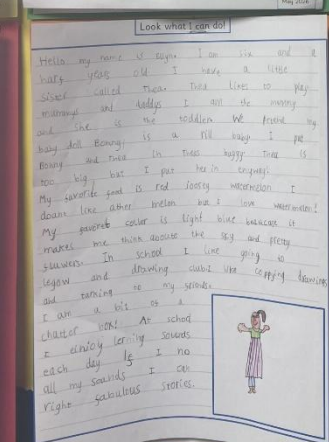 May 2026
Look what I can do!
Hello my name is I am six and a
half years old I have a little
sister called Thea. Thea likes to play
mummys and daddys I am the mummy
and she is the toddler. We my
baby doll Bonny, is a rill baby. I put
Bonny and Thea in buggy Thea is
too big but I put her in enyway!
My favorite food is red Joosey watermelon I
dount like ather melon but I love watermelon!
My favoret coller is light blue beacause it
makes me think aboute the sky and pretty
flawers. In school I like going to
legow and drawing clubs like
and talking to my frends.
I am a bit of a
chatter boks! At school
I enioly lerning sounds
each day I no
all my sounds I can
right fabulous stories.